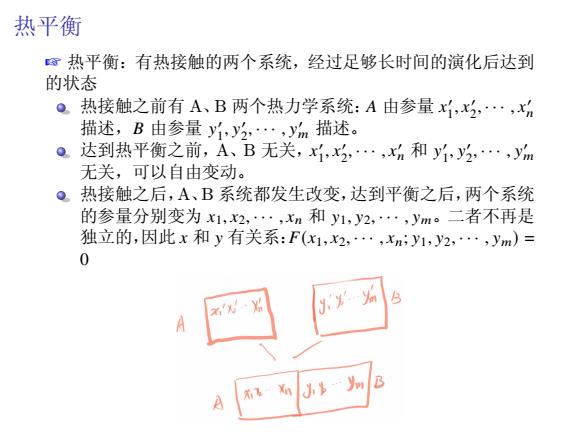 热平衡
☞ 热平衡：有热接触的两个系统，经过足够长时间的演化后达到
的状态
热接触之前有 A、B 两个热力学系统：A 由参量 x′₁, x′₂, ⋯ , x′ₙ
描述，B 由参量 y′₁, y′₂, ⋯ , y′ₘ 描述。
达到热平衡之前，A、B 无关，x′₁, x′₂, ⋯ , x′ₙ 和 y′₁, y′₂, ⋯ , y′ₘ
无关，可以自由变动。
热接触之后，A、B 系统都发生改变，达到平衡之后，两个系统
的参量分别变为 x₁, x₂, ⋯ , xₙ 和 y₁, y₂, ⋯ , yₘ。二者不再是
独立的，因此 x 和 y 有关系：F(x₁, x₂, ⋯ , xₙ; y₁, y₂, ⋯ , yₘ) =
0
A x₁′ x₂′ ⋯ xₙ′ y₁′ y₂′ ⋯ yₘ′ B
A x₁ x₂ ⋯ xₙ y₁ y₂ ⋯ yₘ B